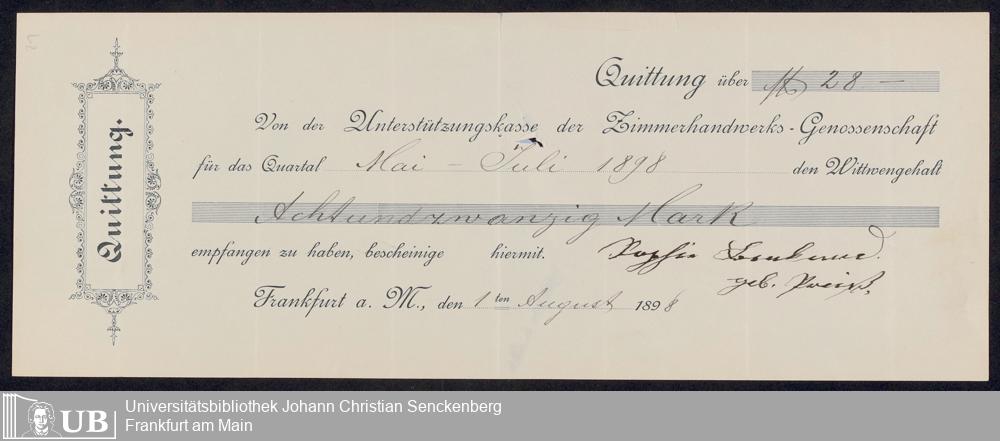 Quittung.
Quittung über ℳ 28 —
Von der Unterstützungskasse der Zimmerhandwerks-Genossenschaft
für das Quartal Mai – Juli 1898 den Wittwengehalt
Achtundzwanzig Mark
empfangen zu haben, bescheinige hiermit. Sophie
geb.
Frankfurt a. M., den 1ten August 1898
UB
Universitätsbibliothek Johann Christian Senckenberg
Frankfurt am Main